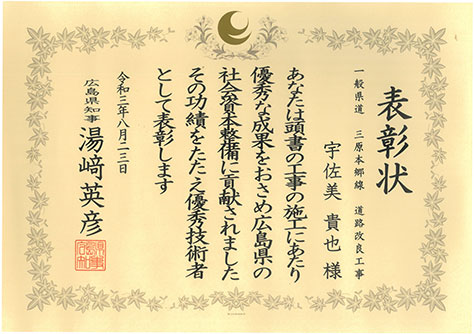 表彰状
一般県道 三原本郷線 道路改良工事
宇佐美 貴也 様
あなたは頭書の工事の施工にあたり
優秀な成果をおさめ広島県の
社会資本整備に貢献されました
その功績をたたえ優秀技術者
として表彰します
令和三年八月二三日
広島県知事 湯﨑英彦